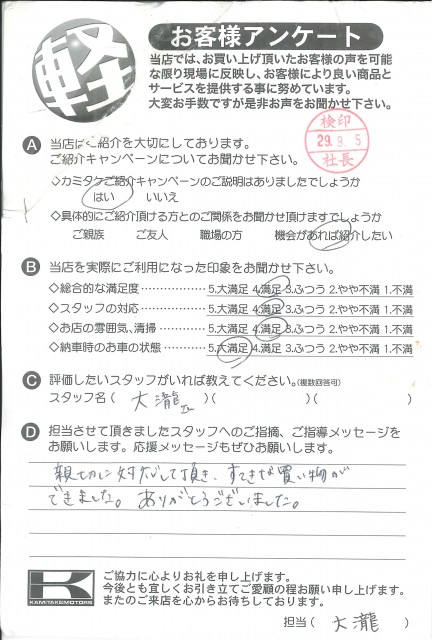 軽
お客様アンケート
当店では、お買い上げ頂いたお客様の声を可能
な限り現場に反映し、お客様により良い商品と
サービスを提供する事に努めています。
大変お手数ですが是非お声をお聞かせ下さい。
検印
29.9.5
社長
A 当店はご紹介を大切にしております。
ご紹介キャンペーンについてお聞かせ下さい。
◇カミタケご紹介キャンペーンのご説明はありましたでしょうか
はい いいえ
◇具体的にご紹介頂ける方とのご関係をお聞かせ頂けますでしょうか
ご親族 ご友人 職場の方 機会があれば紹介したい
B 当店を実際にご利用になった印象をお聞かせ下さい。
◇総合的な満足度……………5.大満足 4.満足 3.ふつう 2.やや不満 1.不満
◇スタッフの対応……………5.大満足 4.満足 3.ふつう 2.やや不満 1.不満
◇お店の雰囲気、清掃………5.大満足 4.満足 3.ふつう 2.やや不満 1.不満
◇納車時のお車の状態………5.大満足 4.満足 3.ふつう 2.やや不満 1.不満
C 評価したいスタッフがいれば教えてください。(複数回答可)
スタッフ名( 大瀧 )( )( )
D 担当させて頂きましたスタッフへのご指摘、ご指導メッセージを
お願いします。応援メッセージもぜひお願いします。
親切に対応して頂き、すてきな買い物が
できました。ありがとうございました。
K
KAMITAKEMOTORS
ご協力に心よりお礼を申し上げます。
今後とも宜しくお引き立てご愛顧の程お願い申し上げます。
またのご来店を心からお待ちしております。
担当( 大瀧 )